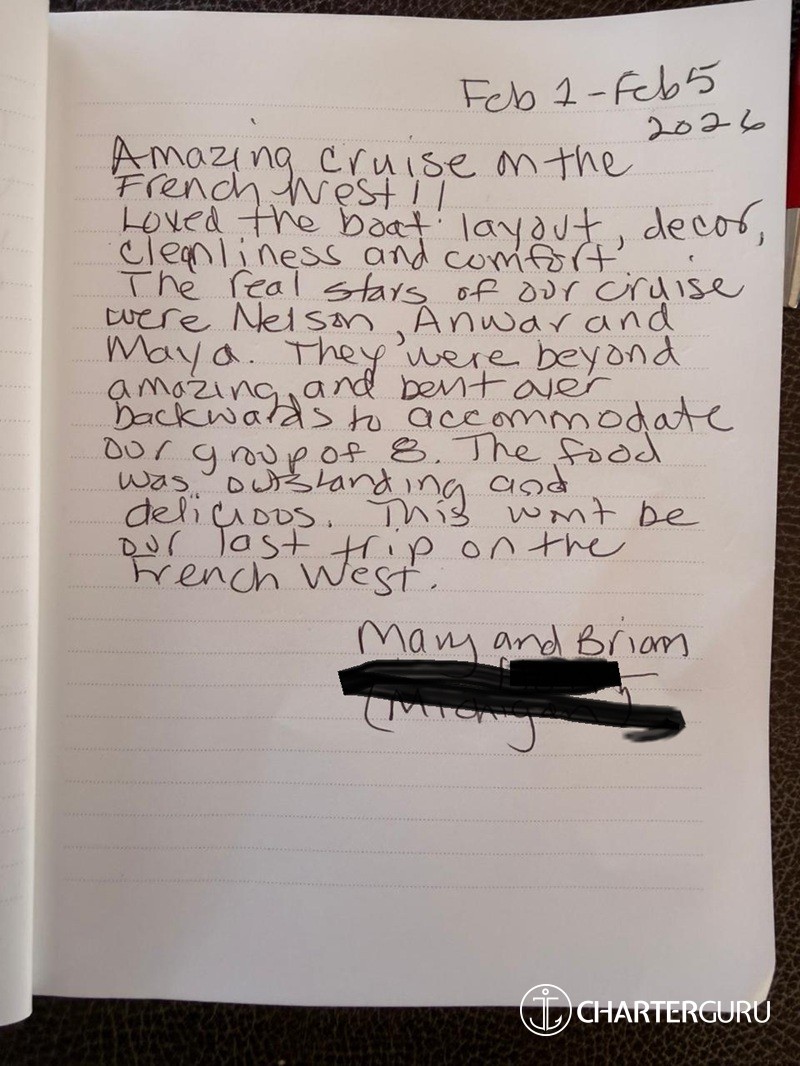 Feb 1 - Feb 5
2026
Amazing cruise on the
French West!!
Loved the boat layout, decor,
cleanliness and comfort
The real stars of our cruise
were Nelson, Anwar and
Maya. They were beyond
amazing and bent over
backwards to accommodate
our group of 8. The food
was outstanding and
delicious. This wont be
our last trip on the
French West.
Mary and Brian
(Michigan)
CHARTERGURU